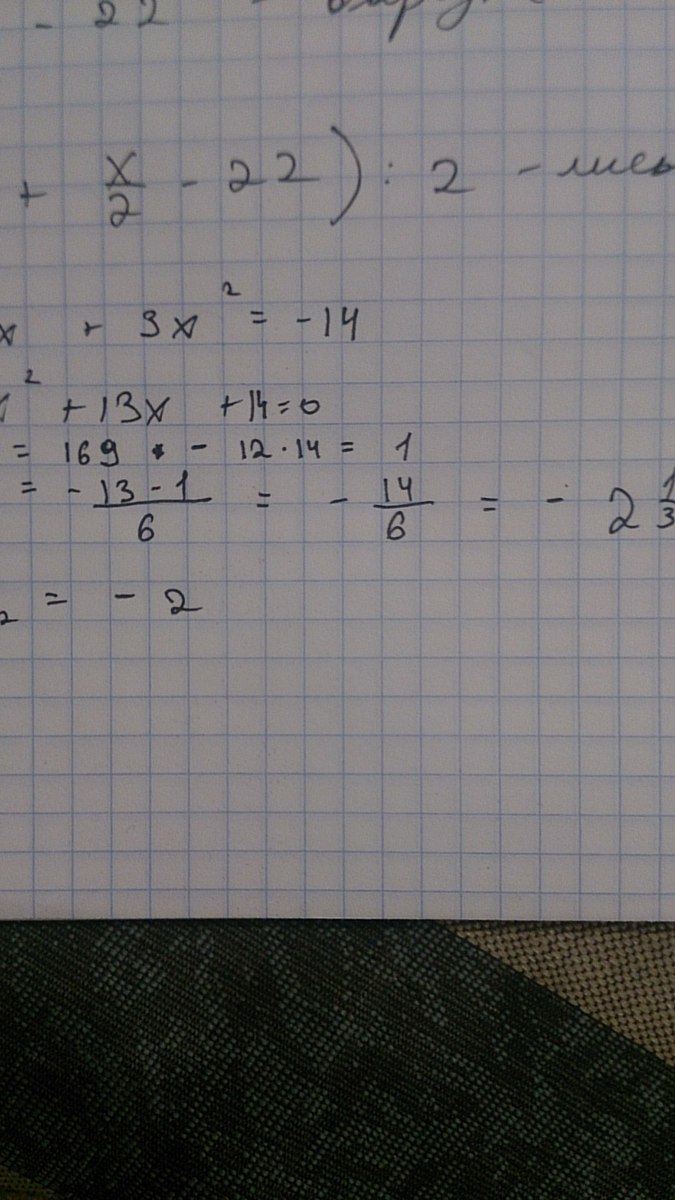 - 22 -
+ x/2 - 22) : 2 - лись
x + 3x² = -14
x² + 13x + 14 = 0
= 169 - 12·14 = 1
= -13-1/6 = - 14/6 = - 2 1/3
2 = - 2